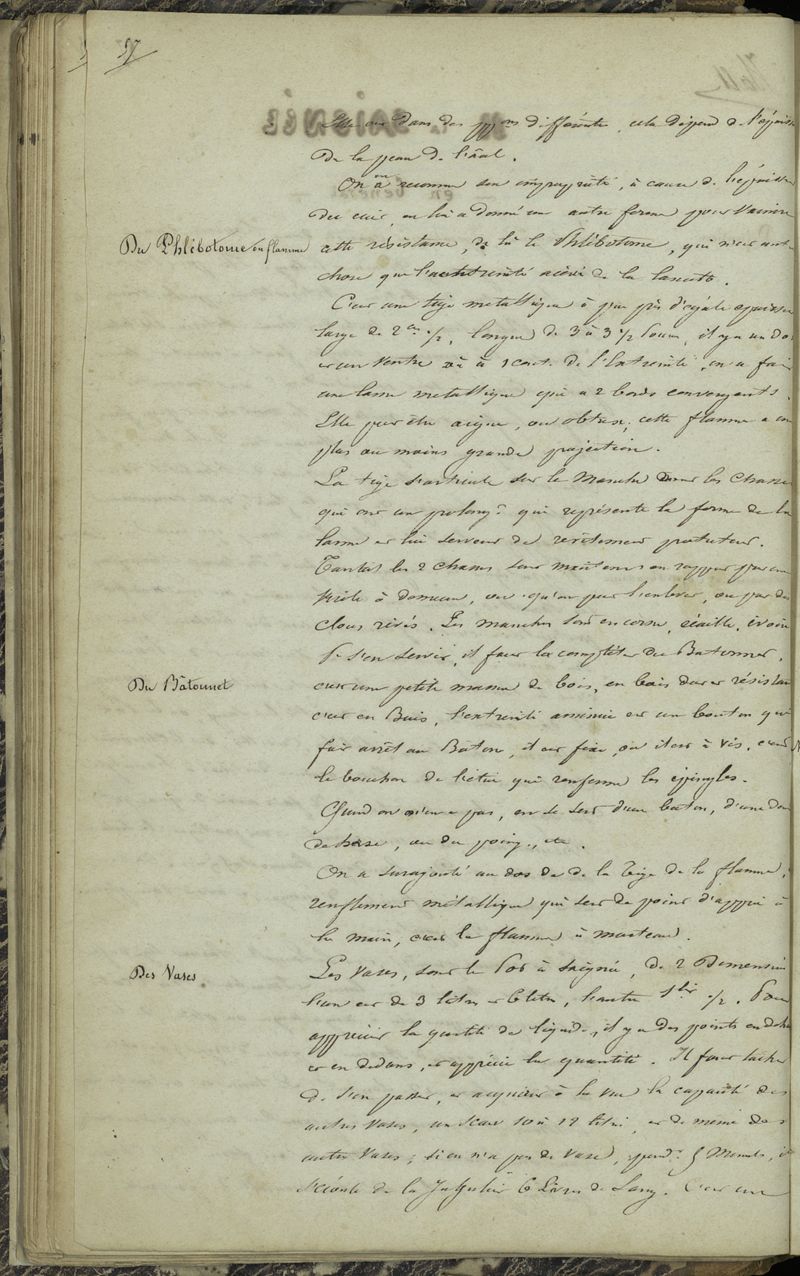 57
Elle est dans des pp.ons différentes, cela dépend de l'épaiss
de la peau de l'anal.
On en a reconnu son impropriété, à cause de l'épaisseur
du cuir, on lui a donné une autre forme pour vaincre
Du Phlébotome en flamme
cette résistance, de là le Phlébotome, qui n'est autre
chose que l'extrémité acérée de la lancette.
C'est une tige métallique à peu près d'égale épaisseur
large de 2 1/2, longue de 3 à 3 1/2 Pouces, il y a un Dos
et un Ventre où à 1 cent. de l'Extremité, on a fait
une lame metallique qui a 2 bords convergents.
Elle peut être aigue, ou obtuse, cette flamme a un
plus ou moins grande projection.
La tige s'articule sur le Manche dans les chasses
qui ont un prolongt qui représente la forme de la
lame et lui servent de vêtement protecteur.
Tantôt les 2 chasses sont maintenues en rapport par une
virole à demeure, ou qu'on peut l'enlever, ou par des
clous rivés. Les manches sont en corne, écaille, ivoire
Pr s'en servir, il faut la compléter du Batonnet,
Du Bâtonnet
c'est une petite masse de bois, en bois dur et résistant
c'est en Buis, l'extremité amincie est un bouton qui
fait arrêt au Bâton, il est fixe, ou il est à vis, c'est
le bouchon de l'étui qui renferme les épingles.
Quand on n'en a pas, on se sert d'un baton, d'une
de brosse, ou du poing, etc.
On a surajouté au dos de la Tige de la flamme,
renflement métallique qui sert de point d'appui à
la main, c'est la flamme à marteau.
Des Vases
Les Vases, sont le Pot à saignée, de 2 Dimensions
l'un est de 3 litres, l'autre 1 lit 1/2. Pour
apprécier la quantité de liquide, il y a des points en dehors
et en dedans, et apprécie la quantité. Il faut tacher
de s'en passer, et acquérir à la vue la capacité des
autres Vases, un Seau 10 à 12 litres, et de même des
autres Vases; si on n'a pas de vase, pendt 5 Minutes, il
s'écoule de la Jugulaire 6 Livres de Sang. C'est une